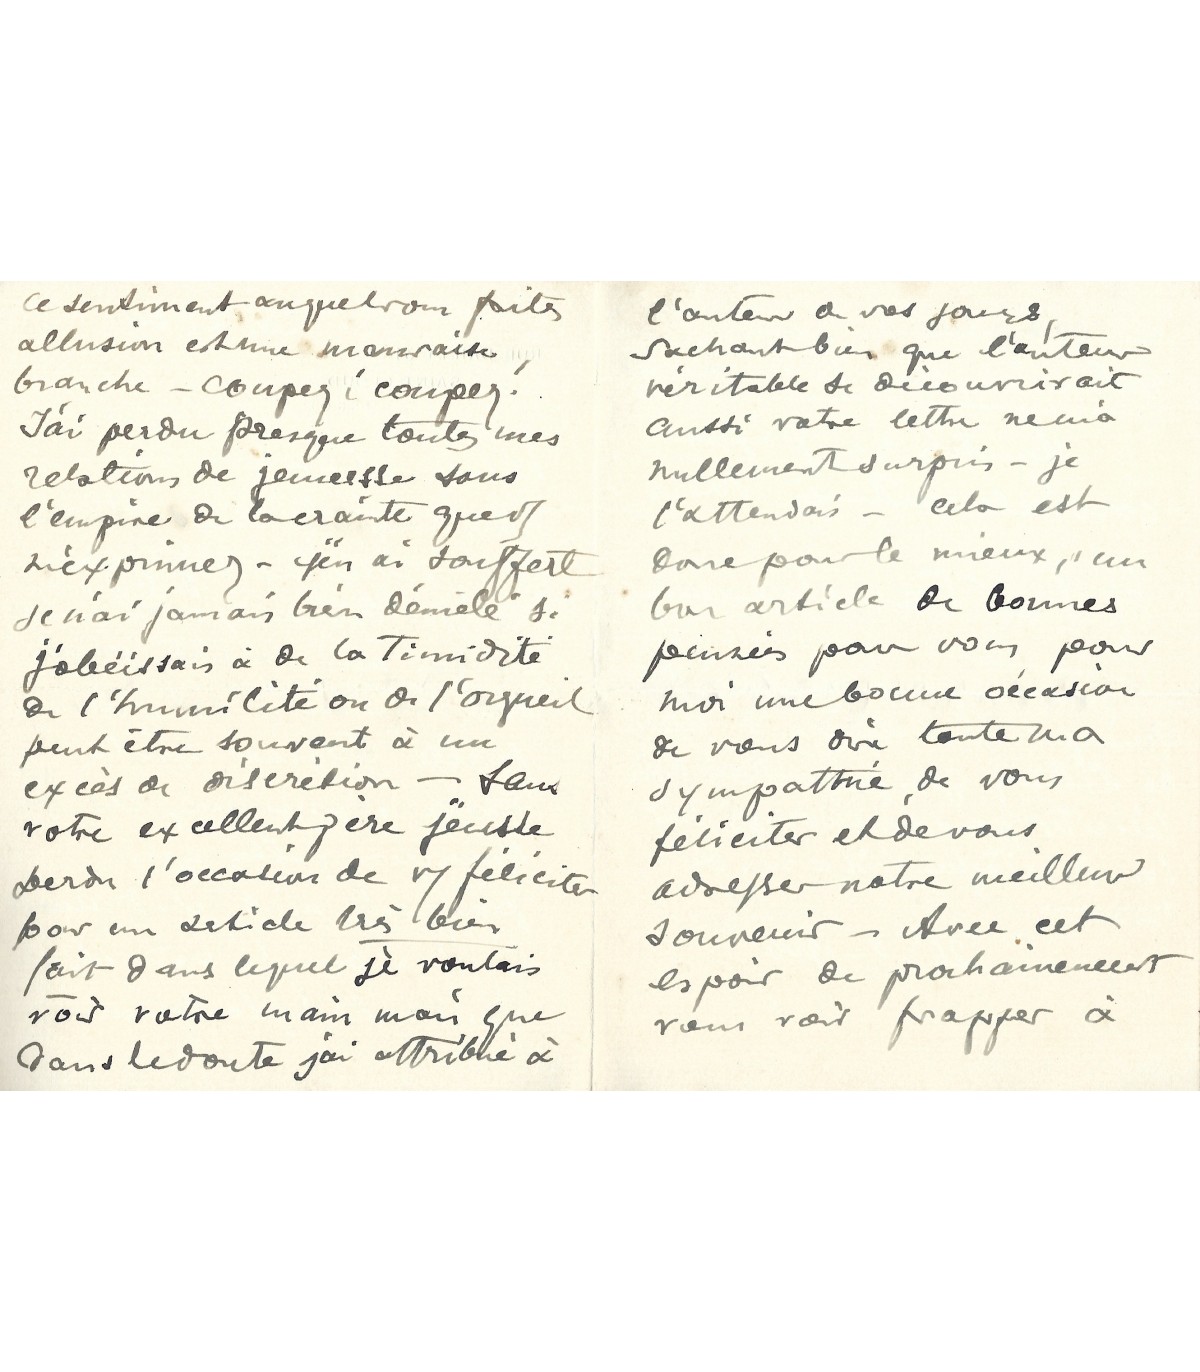 Ce sentiment auquel vous faites
allusion est une mauvaise
branche – coupez ! coupez !
J'ai perdu presque toutes mes
relations de jeunesse sous
l'empire de la crainte que vs
m'exprimez – j'en ai souffert
Je n'ai jamais bien démêlé si
j'obéissais à de la timidité
de l'humilité ou de l'orgueil
peut être souvent à un
excès de discrétion – Sans
votre excellent père j'eusse
perdu l'occasion de vs féliciter
par un article très bien
fait dans lequel je voulais
voir votre main mais que
dans le doute j'ai attribué à
l'auteur de vos jours,
sachant bien que l'auteur
véritable se découvrirait
aussi votre lettre ne m'a
nullement surpris – je
l'attendais – cela est
donc pour le mieux, un
bon article de bonnes
pensées pour vous pour
moi une bonne occasion
de vous dire toute ma
sympathie, de vous
féliciter et de vous
adresser notre meilleur
souvenir – Avec cet
espoir de prochainement
vous voir frapper à